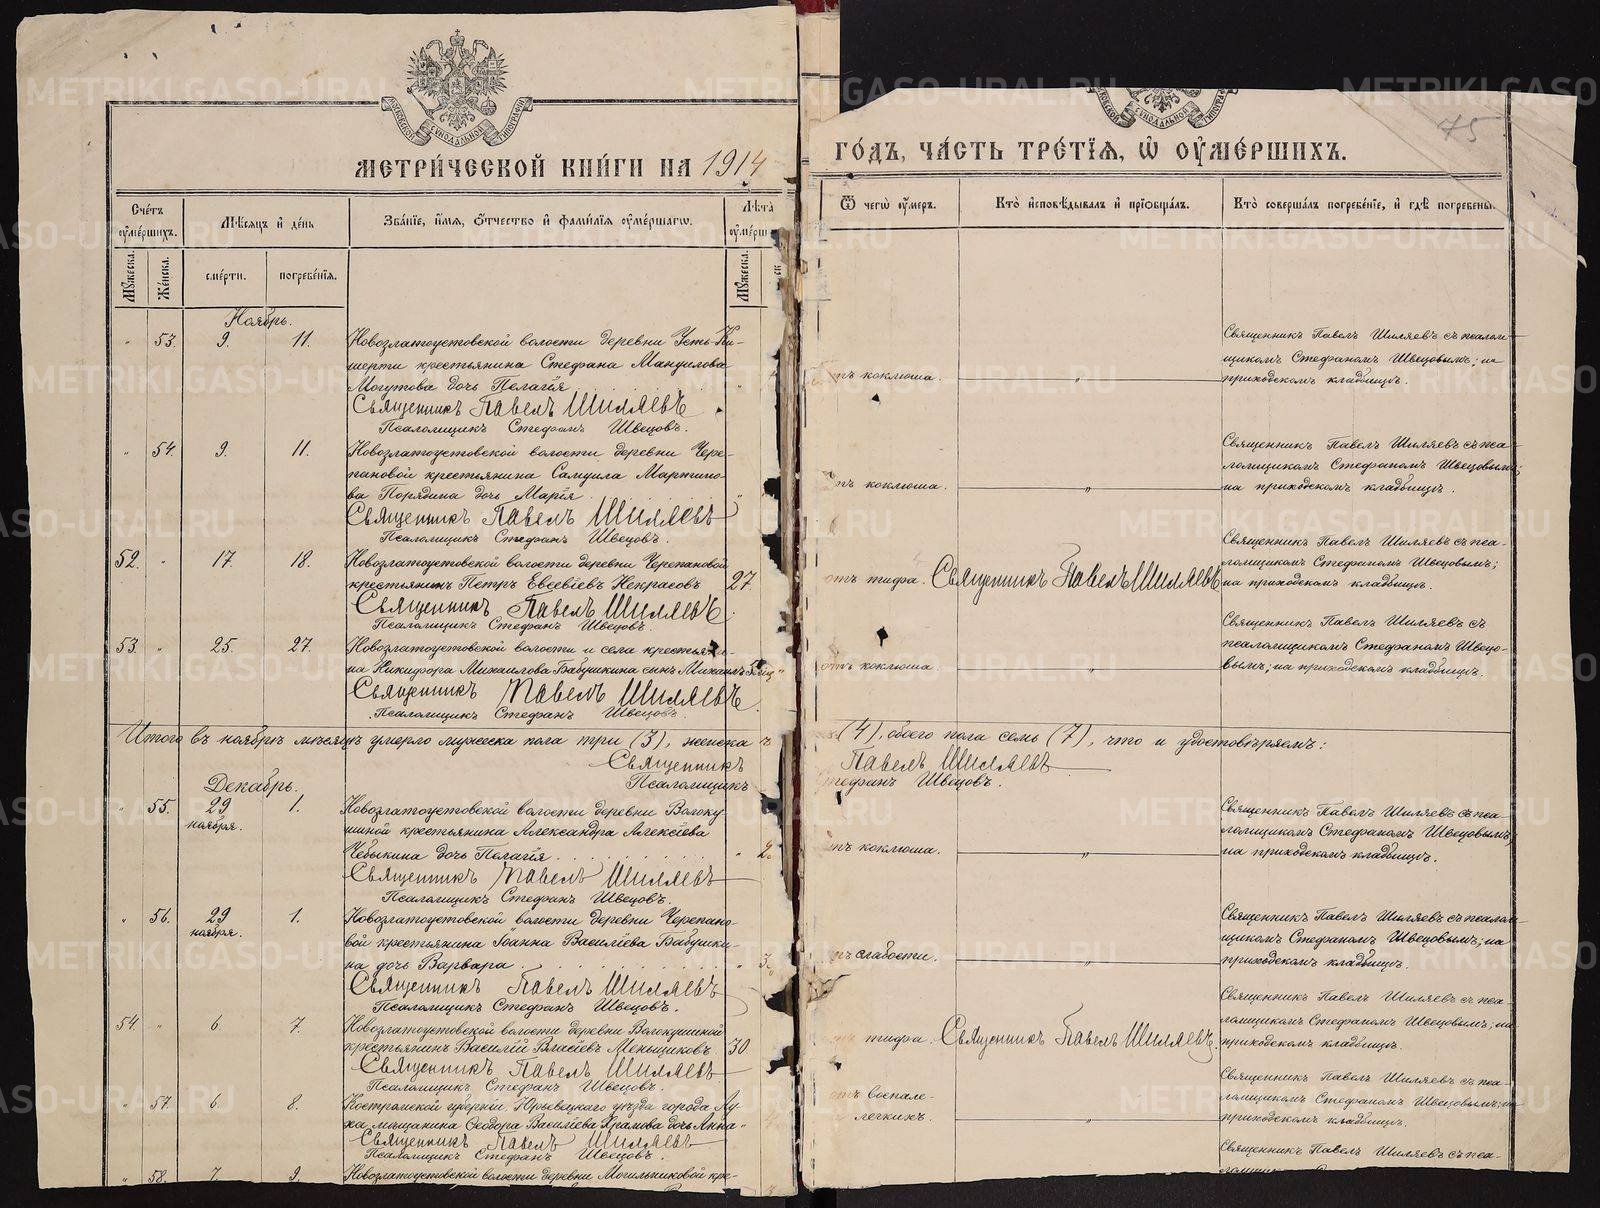 МЕТРИ́ЧЕСКОЙ КНИ́ГИ НА 1914
ГО́ДЪ, ЧА́СТЬ ТРЕ́ТІѦ, Ѡ ОУ҆МЕ́РШИХЪ.
75
Сче́тъ оу҆ме́ршихъ.
Мѣ́сяцъ и де́нь
Зва́ніе, и҆́мя, ѻ҆́тчество и҆ фами́лія оу҆ме́ршагѡ.
Лѣ́та
Ѿ чегѡ̀ оу҆́меръ.
Кто̀ и҆сповѣ́дывалъ и҆ прїѡбща́лъ.
Кто̀ соверша́лъ погребе́ніе, и҆ гдѣ̀ погребены̀.
Мꙋ́жеска.
Же́нска.
сме́рти.
погребе́нія.
Мꙋ́жеска.
Ноябрь.
" 53. 9. 11. Новозлатоустовской волости деревни Усть-Ки-
шерти крестьянина Стефана Мануилова
Могутова дочь Пелагія
Священникъ Павелъ Шиляевъ
Псаломщикъ Стефанъ Швецовъ.
коклюша. "
Священникъ Павелъ Шиляевъ съ псалом-
щикомъ Стефаномъ Швецовымъ; на
приходскомъ кладбищѣ.
" 54. 9. 11. Новозлатоустовской волости деревни Чере-
пановой крестьянина Самуила Мартино-
ва Порядина дочь Марія
Священникъ Павелъ Шиляевъ
Псаломщикъ Стефанъ Швецовъ.
коклюша. "
Священникъ Павелъ Шиляевъ съ пса-
ломщикомъ Стефаномъ Швецовымъ;
на приходскомъ кладбищѣ.
52. " 17. 18. Новозлатоустовской волости деревни Черепановой
крестьянинъ Петръ Евсевіевъ Некрасовъ 27.
Священникъ Павелъ Шиляевъ
Псаломщикъ Стефанъ Швецовъ.
отъ тифа. Священникъ Павелъ Шиляевъ
Священникъ Павелъ Шиляевъ съ пса-
ломщикомъ Стефаномъ Швецовымъ;
на приходскомъ кладбищѣ.
53. " 25. 27. Новозлатоустовской волости и села крестьяни-
на Никифора Михаилова Бабушкина сынъ Михаилъ
Священникъ Павелъ Шиляевъ
Псаломщикъ Стефанъ Швецовъ.
отъ коклюша "
Священникъ Павелъ Шиляевъ съ
псаломщикомъ Стефаномъ Швецо-
вымъ; на приходскомъ кладбищѣ.
Итого въ ноябрѣ мѣсяцѣ умерло мужеска пола три (3), женска
(4), обоего пола семь (7), что и удостовѣряемъ:
Священникъ Павелъ Шиляевъ
Псаломщикъ Стефанъ Швецовъ.
Декабрь.
" 55. 29 ноября. 1. Новозлатоустовской волости деревни Волоку-
шиной крестьянина Александра Алексіева
Чебыкина дочь Пелагія " 2.
Священникъ Павелъ Шиляевъ
Псаломщикъ Стефанъ Швецовъ.
коклюша. "
Священникъ Павелъ Шиляевъ съ пса-
ломщикомъ Стефаномъ Швецовымъ;
на приходскомъ кладбищѣ.
" 56. 29 ноября. 1. Новозлатоустовской волости деревни Черепано-
вой крестьянина Іоанна Василіева Бабушки-
на дочь Варвара " 3.
Священникъ Павелъ Шиляевъ
Псаломщикъ Стефанъ Швецовъ.
слабости. "
Священникъ Павелъ Шиляевъ съ псалом-
щикомъ Стефаномъ Швецовымъ; на
приходскомъ кладбищѣ.
54. " 6. 7. Новозлатоустовской волости деревни Волокушиной
крестьянинъ Василій Власіевъ Меньщиковъ 30.
Священникъ Павелъ Шиляевъ
Псаломщикъ Стефанъ Швецовъ.
тифа. Священникъ Павелъ Шиляевъ.
Священникъ Павелъ Шиляевъ съ пса-
ломщикомъ Стефаномъ Швецовымъ; на
приходскомъ кладбищѣ.
" 57. 6. 8. Костромской губерніи, Юрьевецкаго уѣзда города Лу-
ха мѣщанина Ѳеодора Василіева Храмова дочь Анна
Священникъ Павелъ Шиляевъ
Псаломщикъ Стефанъ Швецовъ.
отъ воспале-
легкихъ. "
Священникъ Павелъ Шиляевъ съ пса-
ломщикомъ Стефаномъ Швецовымъ; на
приходскомъ кладбищѣ.
" 58. 7. 9. Новозлатоустовской волости деревни Могильниковой кре-
Священникъ Павелъ Шиляевъ съ пса-
METRIKI.GASO-URAL.RU